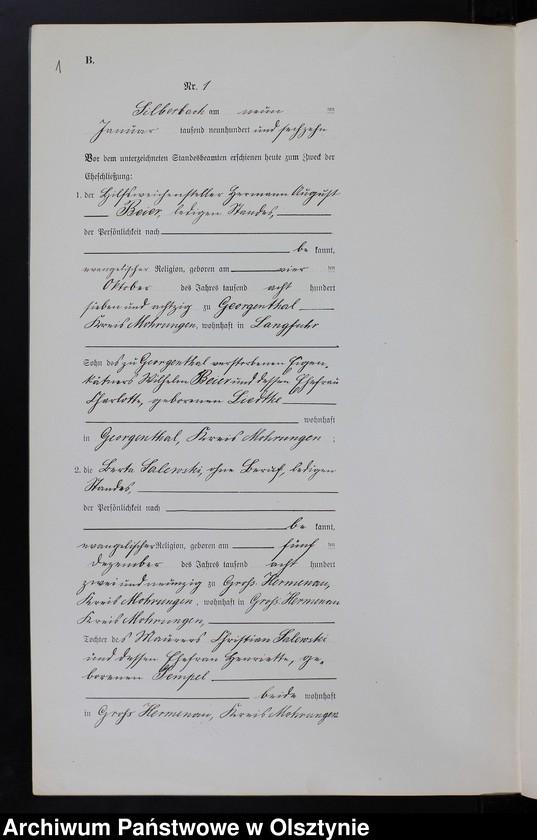 1
B.
Nr. 1
Silberbach am neun ten
Januar tausend neunhundert und sechzehn
Vor dem unterzeichneten Standesbeamten erschienen heute zum Zweck der
Eheschließung:
1. der Hilfsweichensteller Hermann August
Beier, ledigen Standes,
der Persönlichkeit nach
be kannt,
evangelischer Religion, geboren am vier ten
Oktober des Jahres tausend acht hundert
sieben und achtzig zu Georgenthal
Kreis Mohrungen, wohnhaft in Langfuhr
Sohn des zu Georgenthal verstorbenen Eigen-
kätners Wilhelm Beier und dessen Ehefrau
Charlotte, geborenen Liedtke
wohnhaft
in Georgenthal, Kreis Mohrungen ;
2. die Berta Salewski, ohne Beruf, ledigen
Standes,
der Persönlichkeit nach
be kannt,
evangelischer Religion, geboren am fünf ten
Dezember des Jahres tausend acht hundert
zwei und neunzig zu Groß Hermenau,
Kreis Mohrungen, wohnhaft in Groß Hermenau
Kreis Mohrungen,
Tochter des Maurers Christian Salewski
und dessen Ehefrau Henriette, ge-
borenen Tempel
beide wohnhaft
in Groß Hermenau, Kreis Mohrungen
Archiwum Państwowe w Olsztynie